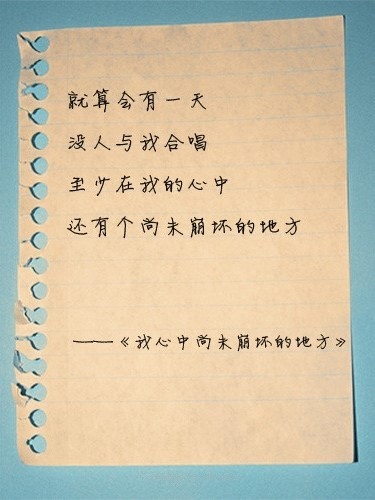 就算会有一天
没人与我合唱
至少在我的心中
还有个尚未崩坏的地方
——《我心中尚未崩坏的地方》